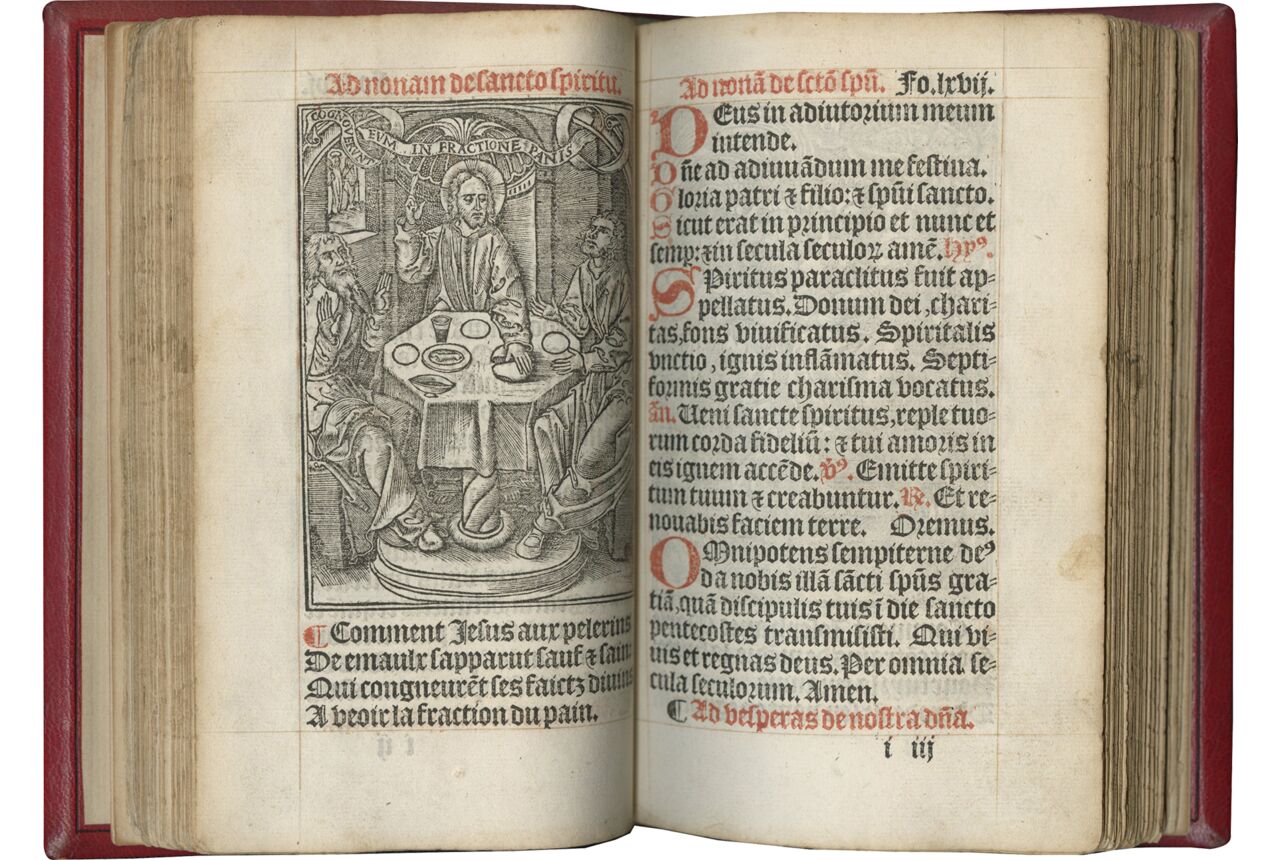 Ad nonam de sancto spiritu.
COGNOVERUNT EVM . IN FRACTIONE PANIS
¶ Comment Jesus aux pelerins
De emaulx sapparut sauf ⁊ sain:
Qui congneurēt ses faictz diuins
A veoir la fraction du pain.
Ad nonā de sctō spū. Fo. lxvij.
DEus in adiutorium meum
intende.
Dñe ad adiuuādum me festina.
Gloria patri ⁊ filio: ⁊ spūi sancto.
Sicut erat in principio et nunc et
semp: ⁊ in secula seculoꝝ amē. hypꝰ.
SPiritus paraclitus fuit ap-
pellatus. Donum dei, chari-
tas, fons viuificatus. Spiritalis
vnctio, ignis inflāmatus. Septi-
formis gratie charisma vocatus.
añ. Ueni sancte spiritus, reple tuo-
rum corda fideliū: ⁊ tui amoris in
eis ignem accēde. v̄ꝰ. Emitte spiri-
tum tuum ⁊ creabuntur. ℟. Et re-
nouabis faciem terre. Oremus.
OMnipotens sempiterne deꝰ
da nobis illā sācti spūs gra-
tiā, quā discipulis tuis ī die sancto
pentecostes transmisisti. Qui vi-
uis et regnas deus. Per omnia se-
cula seculorum. Amen.
¶ Ad vesperas de nostra dña.
i iij